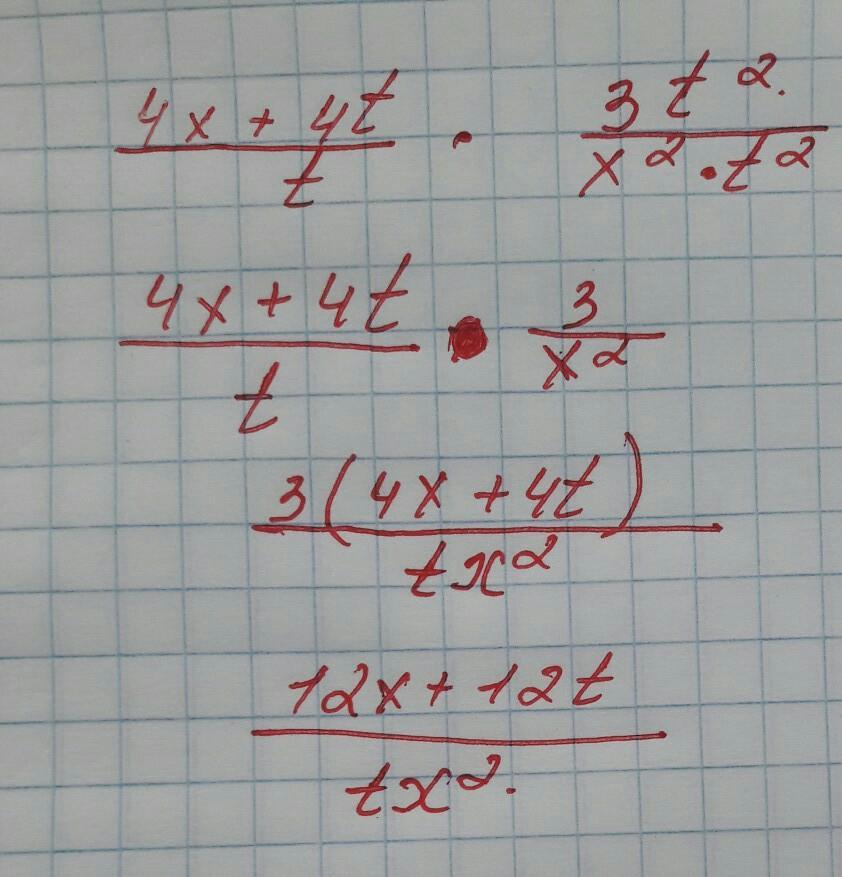 4x + 4t / t · 3t². / x² · t²
4x + 4t / t · 3 / x²
3(4x + 4t) / tx²
12x + 12t / tx².